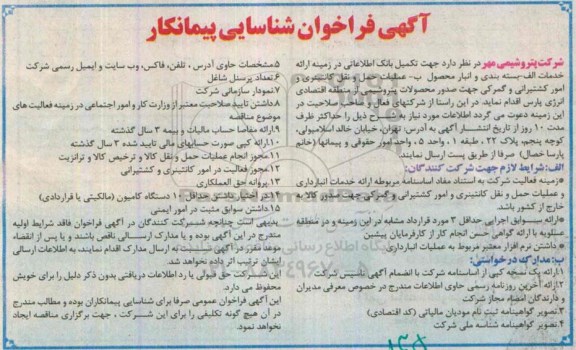 آگهی فراخوان شناسایی پیمانکار
شرکت پتروشیمی مهر در نظر دارد جهت تکمیل بانک اطلاعاتی در زمینه ارائه
خدمات الف-بسته بندی و انبار محصول ب- عملیات حمل و نقل کانتینری و
امور کشتیرانی و گمرکی جهت صدور محصولات پتروشیمی از منطقه اقتصادی
انرژی پارس اقدام نماید. در این راستا از شرکتهای فعال و صاحب صلاحیت در
این زمینه دعوت می گردد اطلاعات مورد نیاز به شرح ذیل را حداکثر ظرف
مدت ۱۰ روز از تاریخ انتشار آگهی به آدرس: تهران، خیابان خالد اسلامبولی،
کوچه پنجم، پلاک ۲۲، طبقه ۱، واحد ۵، واحد امور حقوقی و پیمانها (خانم
پارسا خصال) صرفا از طریق پست ارسال نمایند.
الف: شرایط لازم جهت شرکت کنندگان:
*زمینه فعالیت شرکت به استناد مفاد اساسنامه مربوطه ارائه خدمات انبارداری
و عملیات حمل و نقل کانتینری و امور کشتیرانی و گمرکی جهت صدور کالا به
خارج از کشور باشد.
*ارائه سوابق اجرایی حداقل ۳ مورد قرارداد مشابه در این زمینه و در منطقه
عسلویه با ارائه گواهی حسن انجام کار از کارفرمایان پیشین
* داشتن نرم افزار معتبر مربوط به عملیات انبارداری
ب: مدارک درخواستی:
۱.ارائه یک نسخه کپی از اساسنامه شرکت با انضمام آگهی تاسیس شرکت
۲.ارائه آخرین روزنامه رسمی حاوی اطلاعات مندرج در خصوص معرفی مدیران
و دارندگان امضاء مجاز شرکت
۳.تصویر گواهینامه ثبت نام مودیان مالیاتی (کد اقتصادی)
۴.تصویر گواهینامه شناسه ملی شرکت
۵.مشخصات حاوی آدرس ، تلفن، فاکس، وب سایت و ایمیل رسمی شرکت
۶.تعداد پرسنل شاغل
۷.نمودار سازمانی شرکت
۸.داشتن تایید صلاحیت معتبر از وزارت کار و امور اجتماعی در زمینه فعالیت های
موضوع مناقصه
۹.ارائه مفاصا حساب مالیات و بیمه ۳ سال گذشته
۱۰.ارائه کپی صورت حسابهای مالی تایید شده ۳ سال گذشته
۱۱.مجوز انجام عملیات حمل و نقل کالا و ترخیص کالا و ترانزیت
۱۲.مجوز فعالیت در امور کانتینری و کشتیرانی
۱۳.پروانه حق العملکاری
۱۴.در اختیار داشتن حداقل ۱۰ دستگاه کامیون (مالکیتی یا قراردادی)
۱۵.داشتن سوابق مثبت در امور ایمنی
بدیهی است چنانچه شرکت کنندگان در آگهی فراخوان فاقد شرایط اولیه
مندرج در این آگهی بوده و یا مدارک ارسالی ناقص باشند و یا پس از انقضاء
موعد مقرر در آگهی نسبت به ارسال مدارک اقدام نمایند، به اطلاعات ارسالی
ایشان ترتیب اثر داده نخواهد شد.
این شرکت حق قبولی یا رد اطلاعات دریافتی بدون ذکر دلیل را برای خویش
محفوظ می دارد.
این آگهی فراخوان عمومی صرفا برای شناسایی پیمانکاران بوده و مطالب مندرج
در آن هیچ گونه تکلیفی را برای این شرکت ، جهت برگزاری مناقصه ایجاد
نخواهد نمود.